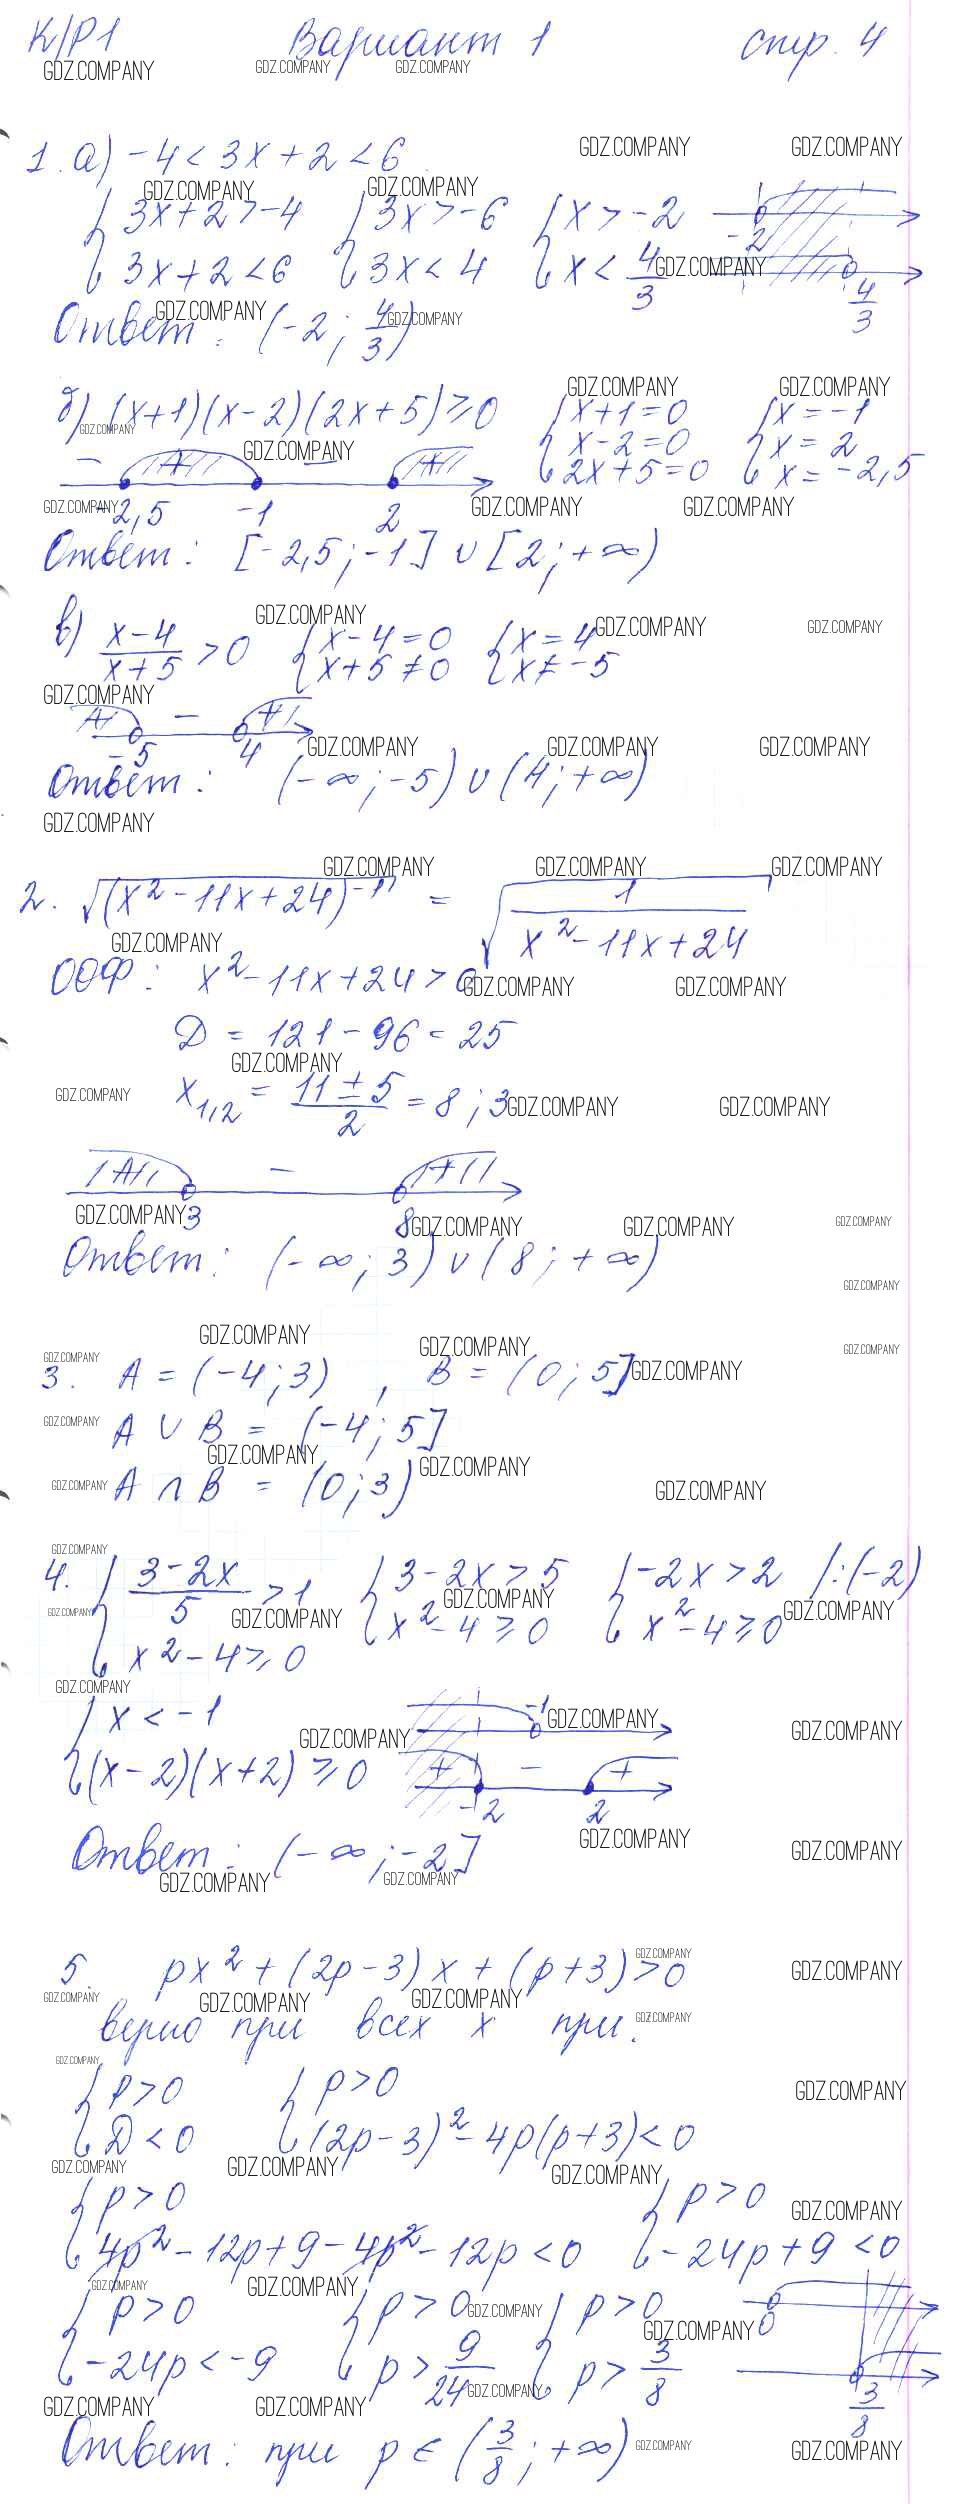 К/Р1 Вариант 1 стр. 4
1. а) -4 < 3x + 2 < 6
{ 3x+2 > -4 { 3x > -6 { x > -2
{ 3x+2 < 6 { 3x < 4 { x < 4/3
-2
4/3
Ответ: (-2; 4/3)
б) (x+1)(x-2)(2x+5) ≥ 0 { x+1=0 { x=-1
{ x-2=0 { x=2
{ 2x+5=0 { x=-2,5
- + - +
-2,5 -1 2
Ответ: [-2,5; -1] ∪ [2; +∞)
в) (x-4)/(x+5) > 0 { x-4=0 { x=4
{ x+5≠0 { x≠-5
+ - +
-5 4
Ответ: (-∞; -5) ∪ (4; +∞)
2. √((x²-11x+24)⁻¹) = √(1/(x²-11x+24))
ООФ: x²-11x+24 > 0
Д = 121 - 96 = 25
x₁,₂ = (11±5)/2 = 8; 3
+ - +
3 8
Ответ: (-∞; 3) ∪ (8; +∞)
3. A = (-4; 3), B = (0; 5]
A ∪ B = (-4; 5]
A ∩ B = (0; 3)
4. { (3-2x)/5 > 1 { 3-2x > 5 { -2x > 2 /:(-2)
{ x²-4 ≥ 0 { x²-4 ≥ 0 { x²-4 ≥ 0
{ x < -1
{ (x-2)(x+2) ≥ 0
-1
+ - +
-2 2
Ответ: (-∞; -2]
5. px² + (2p-3)x + (p+3) > 0
верно при всех x при:
{ p > 0 { p > 0
{ Д < 0 { (2p-3)² - 4p(p+3) < 0
{ p > 0 { p > 0
{ 4p² - 12p + 9 - 4p² - 12p < 0 { -24p + 9 < 0
{ p > 0 { p > 0 { p > 0
{ -24p < -9 { p > 9/24 { p > 3/8
0
3/8
Ответ: при p ∈ (3/8; +∞)
GDZ.COMPANY